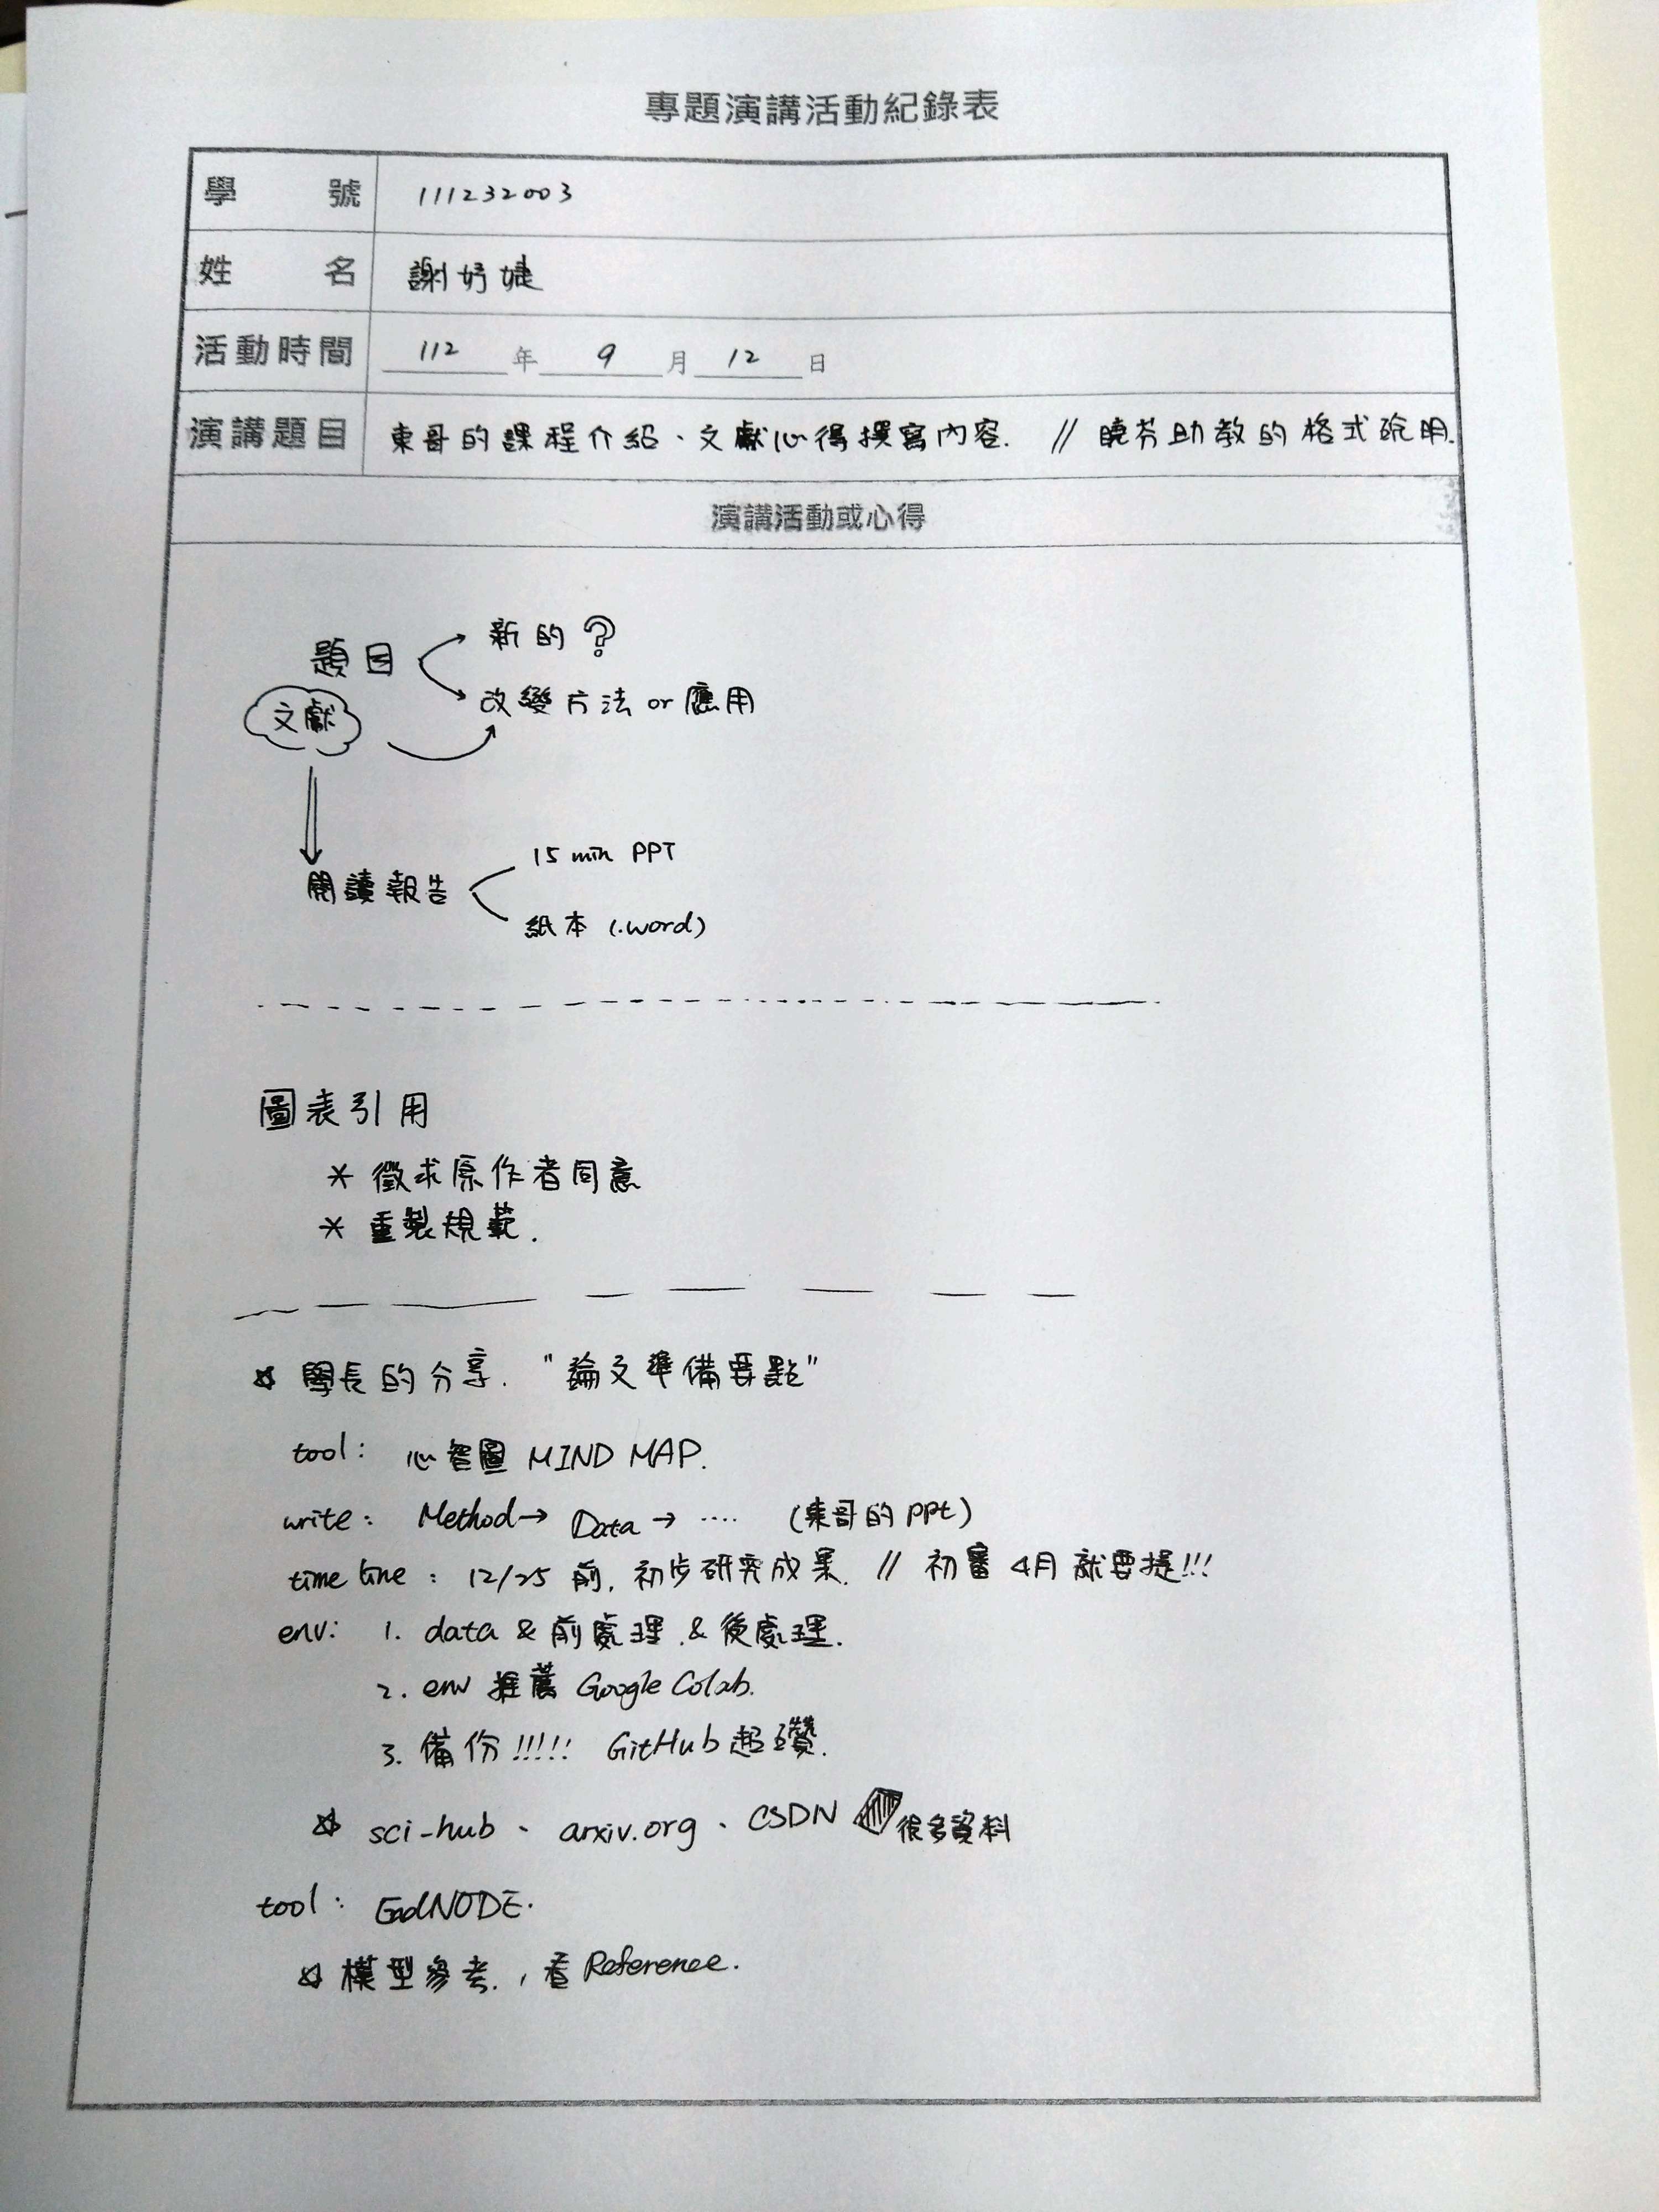 專題演講活動紀錄表
學號 111232003
姓名 謝妤婕
活動時間 112 年 9 月 12 日
演講題目 東哥的課程介紹、文獻心得撰寫內容. // 曉芬助教的格式說明.
演講活動或心得
題目
新的?
改變方法 or 應用
文獻
閱讀報告
15 min PPT
紙本 (.word)
圖表引用
* 徵求原作者同意
* 重製規範.
☆ 學長的分享. "論文準備要點"
tool: 心智圖 MIND MAP.
write: Method → Data → .... (東哥的 ppt)
time line: 12/25 前, 初步研究成果. // 初審 4月就要提!!!
env: 1. data & 前處理 & 後處理.
2. env 推薦 Google Colab.
3. 備份!!!!! GitHub 超讚.
☆ sci-hub、arxiv.org、CSDN 很多資料
tool: EndNODE.
☆ 模型參考., 看 Reference.